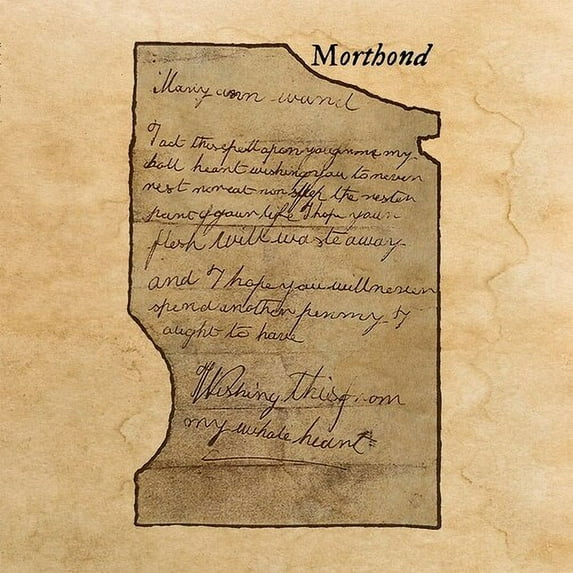 Morthond
Mary ann ward
I act this spell upon you from my
hole heart wishing you to never
rest nor eat nor sleep the resten
part of your life I hope your
flesh will waste away
and I hope you will never
spend another penny I
ought to have
Wishing this from
my whole heart